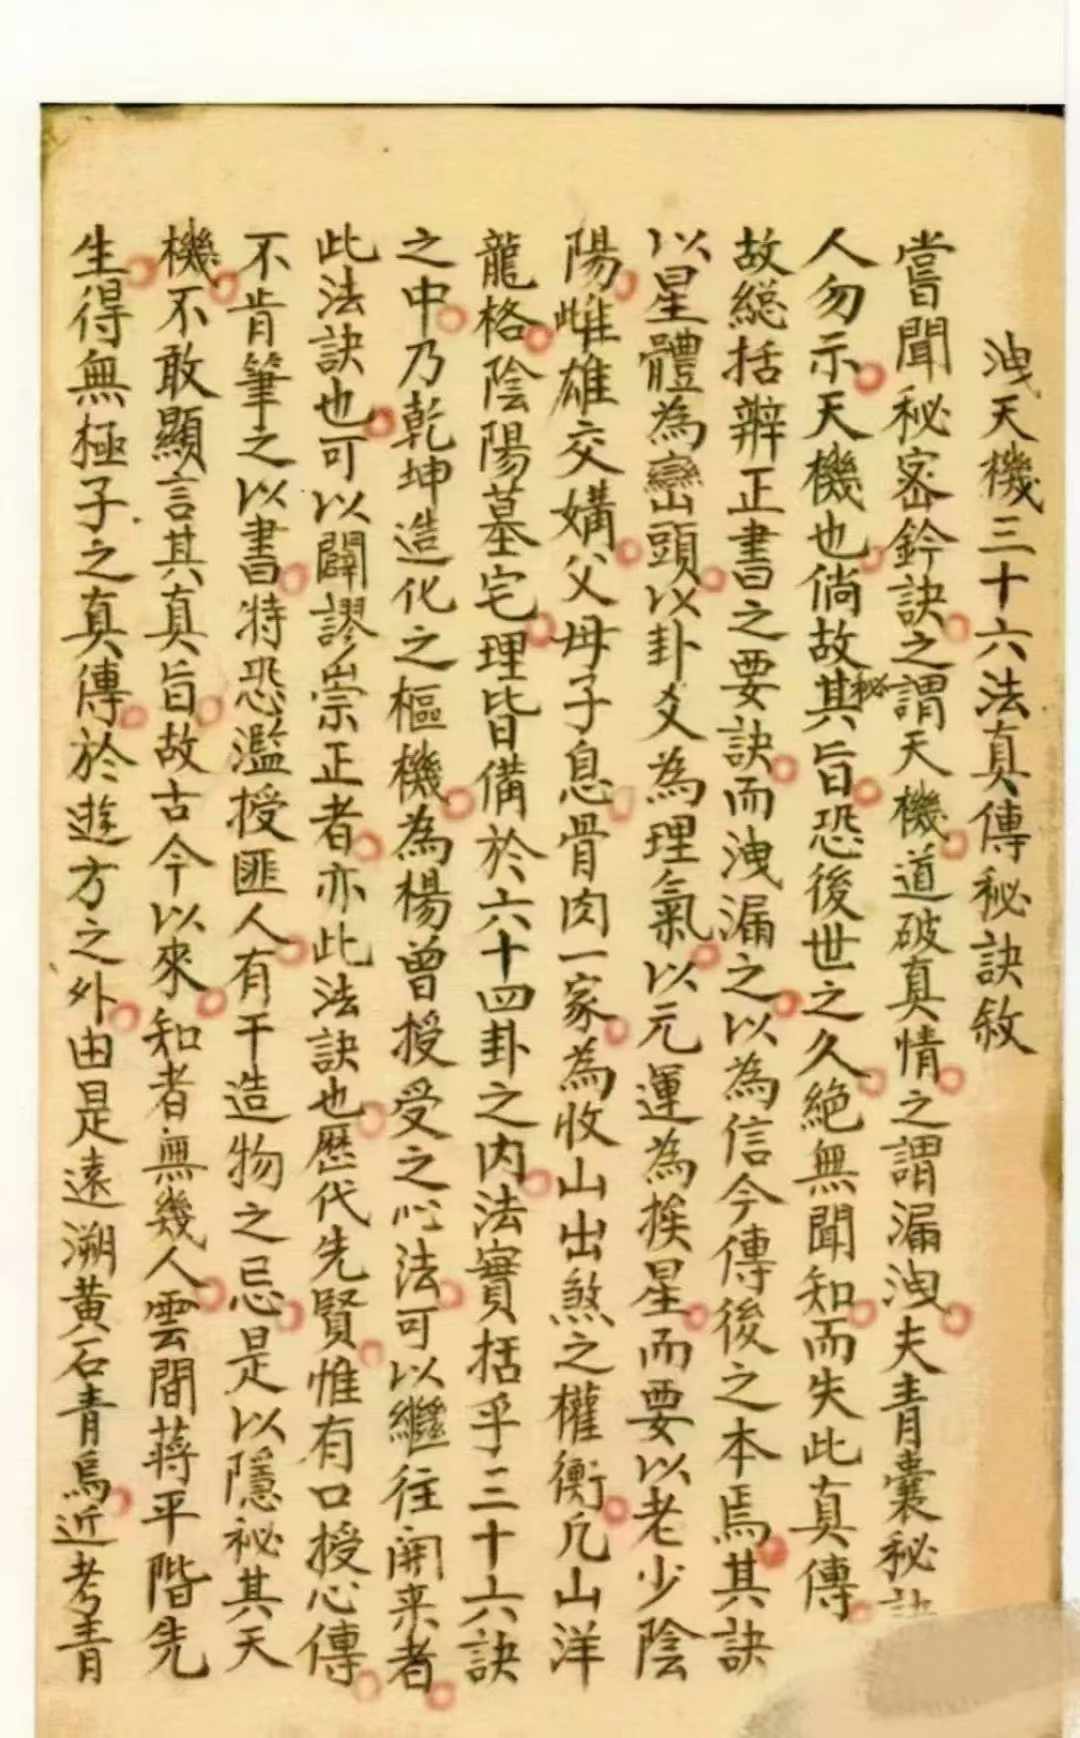 洩天機三十六法真傳秘訣敘
嘗聞秘密鈐訣之謂天機道破真情之謂漏洩夫青囊秘
人勿示天機也倘故其秘旨恐後世之久絕無聞知而失此真傳
故総括辨正書之要訣而洩漏之以為信今傳後之本焉其訣
以星體為巒頭以卦爻為理氣以元運為挨星而要以老少陰
陽雌雄交媾父母子息骨肉一家為收山出煞之權衡凡山洋
龍格陰陽墓宅理皆備於六十四卦之内法實括乎三十六訣
之中乃乾坤造化之樞機為楊曾授受之心法可以繼往開来者
此法訣也可以闢謬崇正者亦此法訣也歷代先賢惟有口授心傳
不肯筆之以書特恐濫授匪人有干造物之忌是以隱秘其天
機不敢顯言其真旨故古今以來知者無幾人雲間蔣平階先
生得無極子之真傳於遊方之外由是遠溯黃石青烏近考青